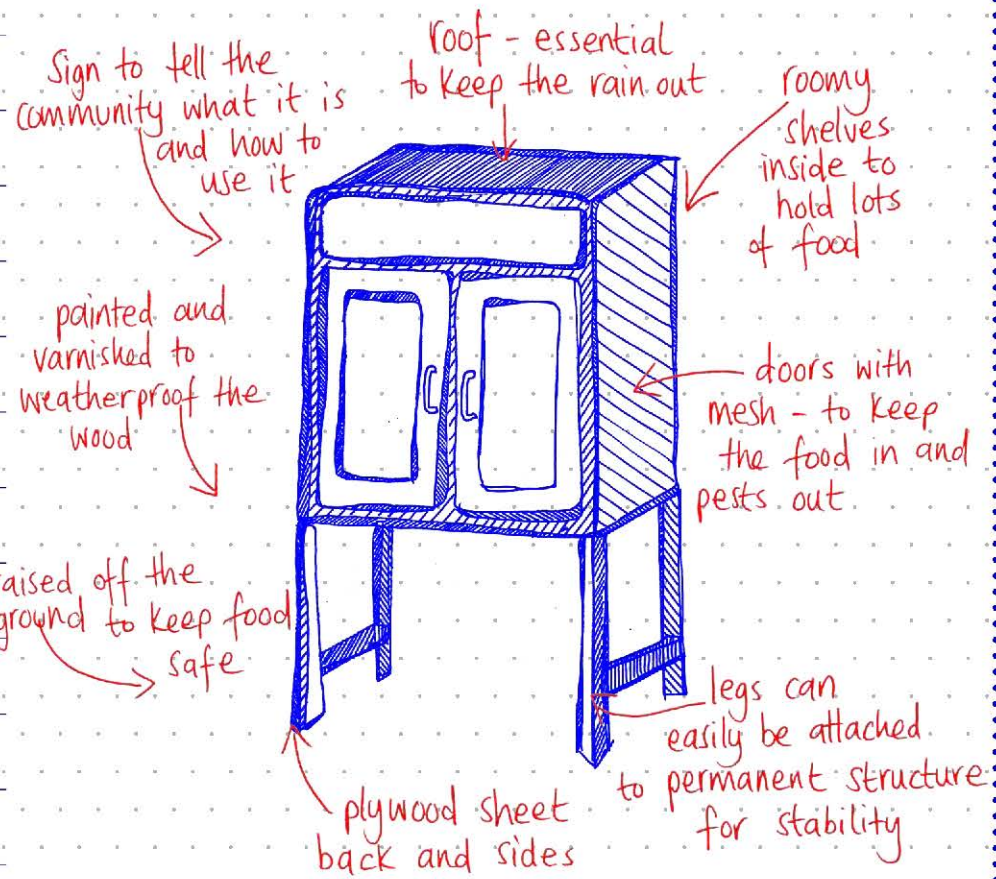 Sign to tell the
community what it is
and how to
use it
roof - essential
to keep the rain out
roomy
shelves
inside to
hold lots
of food
painted and
varnished to
weatherproof the
wood
doors with
mesh - to keep
the food in and
pests out
aised off the
ground to keep food
safe
legs can
easily be attached
to permanent structure
for stability
plywood sheet
back and sides